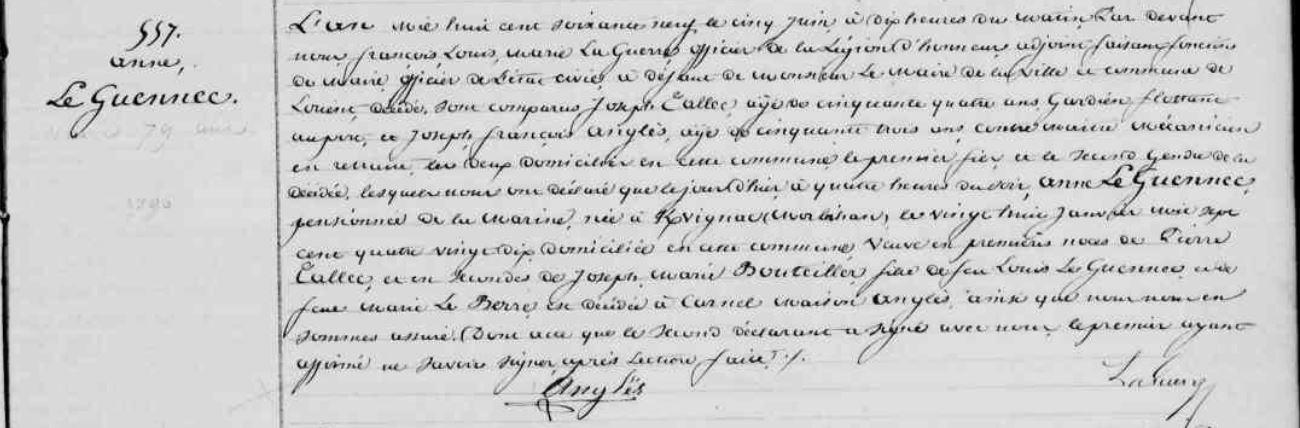 557.
anne,
Le Guennec.
79 ans
1790
L'an mil huit cent soixante neuf le cinq Juin, à dix heures du matin, Par devant
nous, françois, Louis, Marie La Guerre, officier de la Légion d'honneur, adjoint faisant fonctions
de Maire, officier de l'état civil, à défaut de Monsieur Le Maire de la ville et commune de
Lorient, décédé, sont comparus Joseph Callec, âgé de cinquante quatre ans, Gardien flottant
au port, et Joseph, françois Anglès, âgé de cinquante trois ans, contre maître mécanicien
en retraite, les deux domiciliés en cette commune, le premier fils, et le second gendre de la
décédée, lesquels nous ont déclaré que le jour d'hier, à quatre heures du soir, anne Le Guennec,
pensionnée de la marine, née à Kvignac (Morbihan), le vingt huit Janvier mil sept
cent quatre vingt dix, domiciliée en cette commune, Veuve en premières noces de Pierre
Callec, et en secondes de Joseph, Marie Bouteiller, fille de feu Louis Le Guennec, et de
feue Marie Le Berre, est décédée à Carnel maison Anglès, ainsi que nous nous en
sommes assuré. (Dont acte que le second déclarant a signé avec nous, le premier ayant
affirmé ne savoir signer, après Lecture faite./.
Anglès